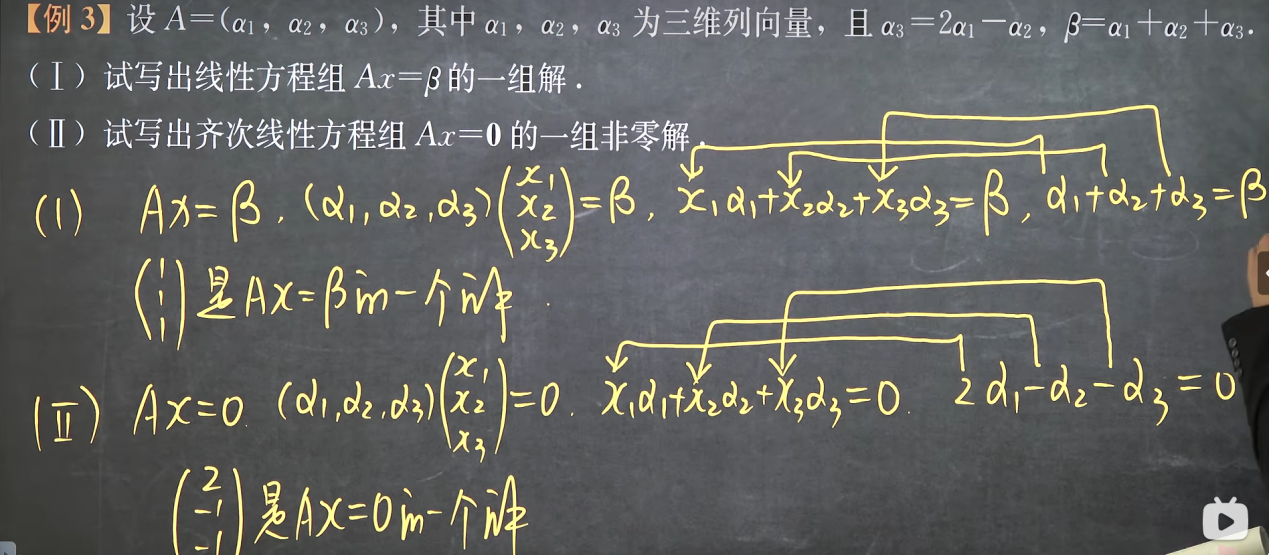 【例3】设 A=(α₁，α₂，α₃)，其中 α₁，α₂，α₃ 为三维列向量，且 α₃=2α₁−α₂，β=α₁+α₂+α₃.
（Ⅰ）试写出线性方程组 Ax=β 的一组解．
（Ⅱ）试写出齐次线性方程组 Ax=0 的一组非零解．
(I) Ax=β, (α₁,α₂,α₃)(x₁ x₂ x₃)=β, x₁α₁+x₂α₂+x₃α₃=β, α₁+α₂+α₃=β
(1 1 1)是AX=β的一个解.
(Ⅱ) Ax=0. (α₁,α₂,α₃)(x₁ x₂ x₃)=0. x₁α₁+x₂α₂+x₃α₃=0. 2α₁-α₂-α₃=0
(2 -1 -1)是AX=0的一个解